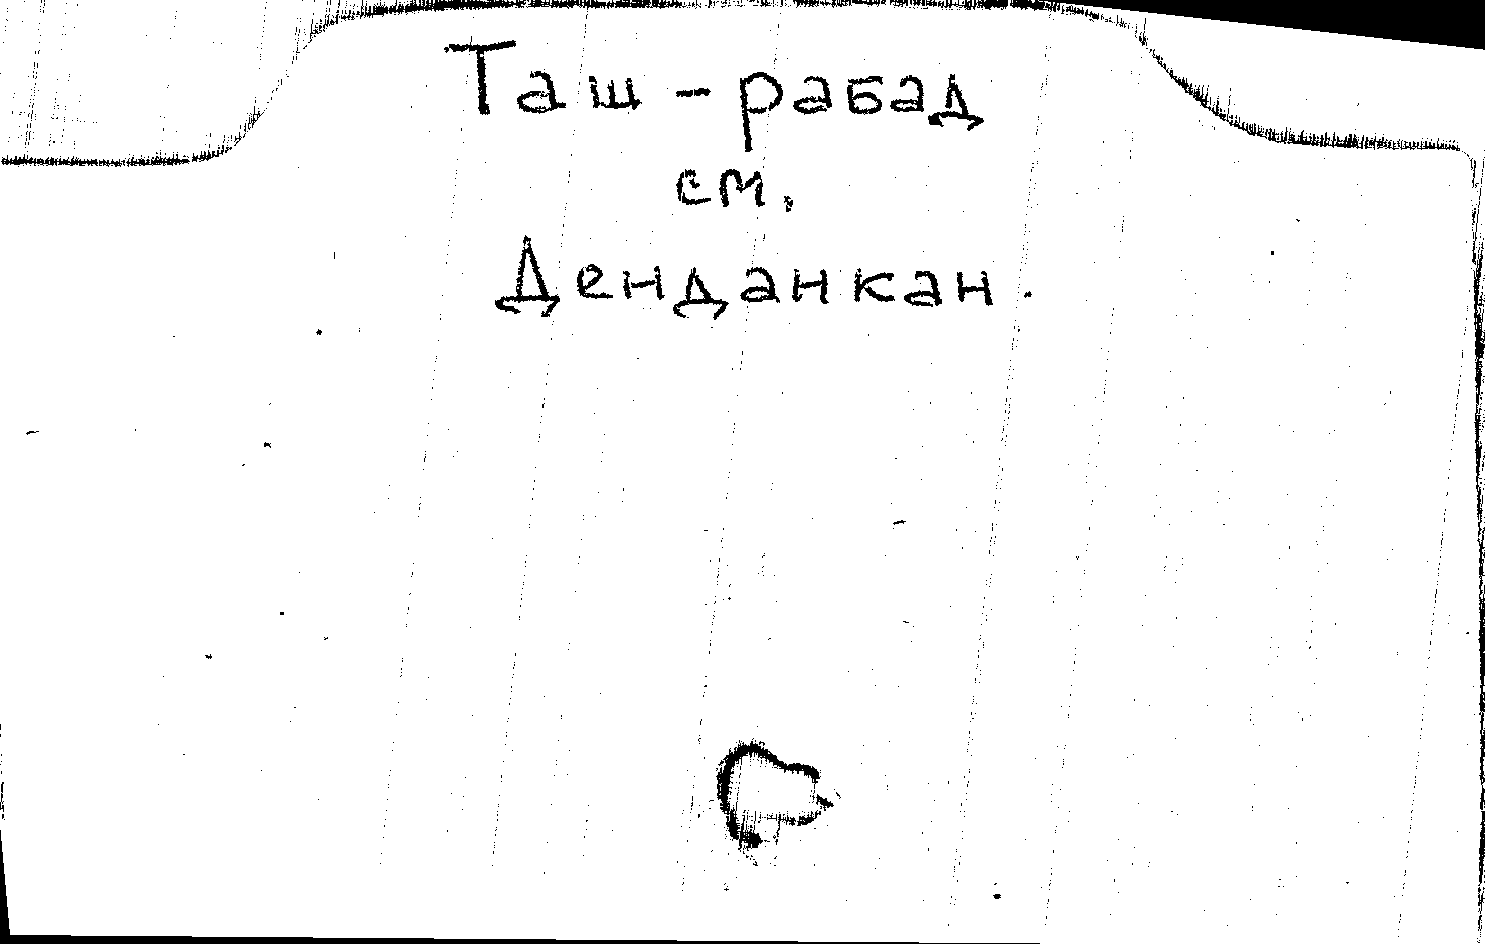 Таш-рабад
см.
Денданкан.